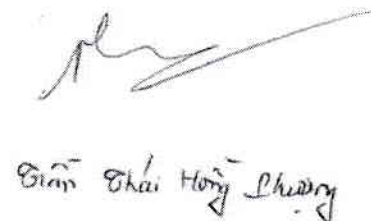 Trần Thái Hồng Phương